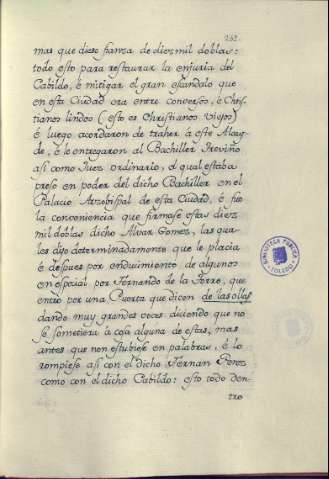 232.
mas que diese fianza de diez mil doblas:
todo esto para restaurar la enjuria del
Cabildo, è mitigar el gran escándalo que
en esta Ciudad era entre converso, è Chris-
tianos lindos (esto es Christianos Viejos)
è luego acordaron de traher à este Alcay-
de, è le entregaron al Bachiller Treviño
asi como Juez ordinario, el qual estaba
preso en poder del dicho Bachiller en el
Palacio Arzobispal de esta Ciudad, è fue
la conveniencia que firmase estas diez
mil doblas dicho Alvar Gomez, las qua-
les dijo determinadamente que le placia
è despues por enducimiento de algunos
en especial por Fernando de la Torre, que
entrò por una Puerta que dicen de las ollas
dando muy grandes voces diciendo que no
se sometiera à cosa alguna de estas, mas
antes que non estubiese en palabras, è lo
rompiese asi con el dicho Fernan Perez
como con el dicho Cabildo: esto todo den-
tro
BIBLIOTECA PÚBLICA
TOLEDO